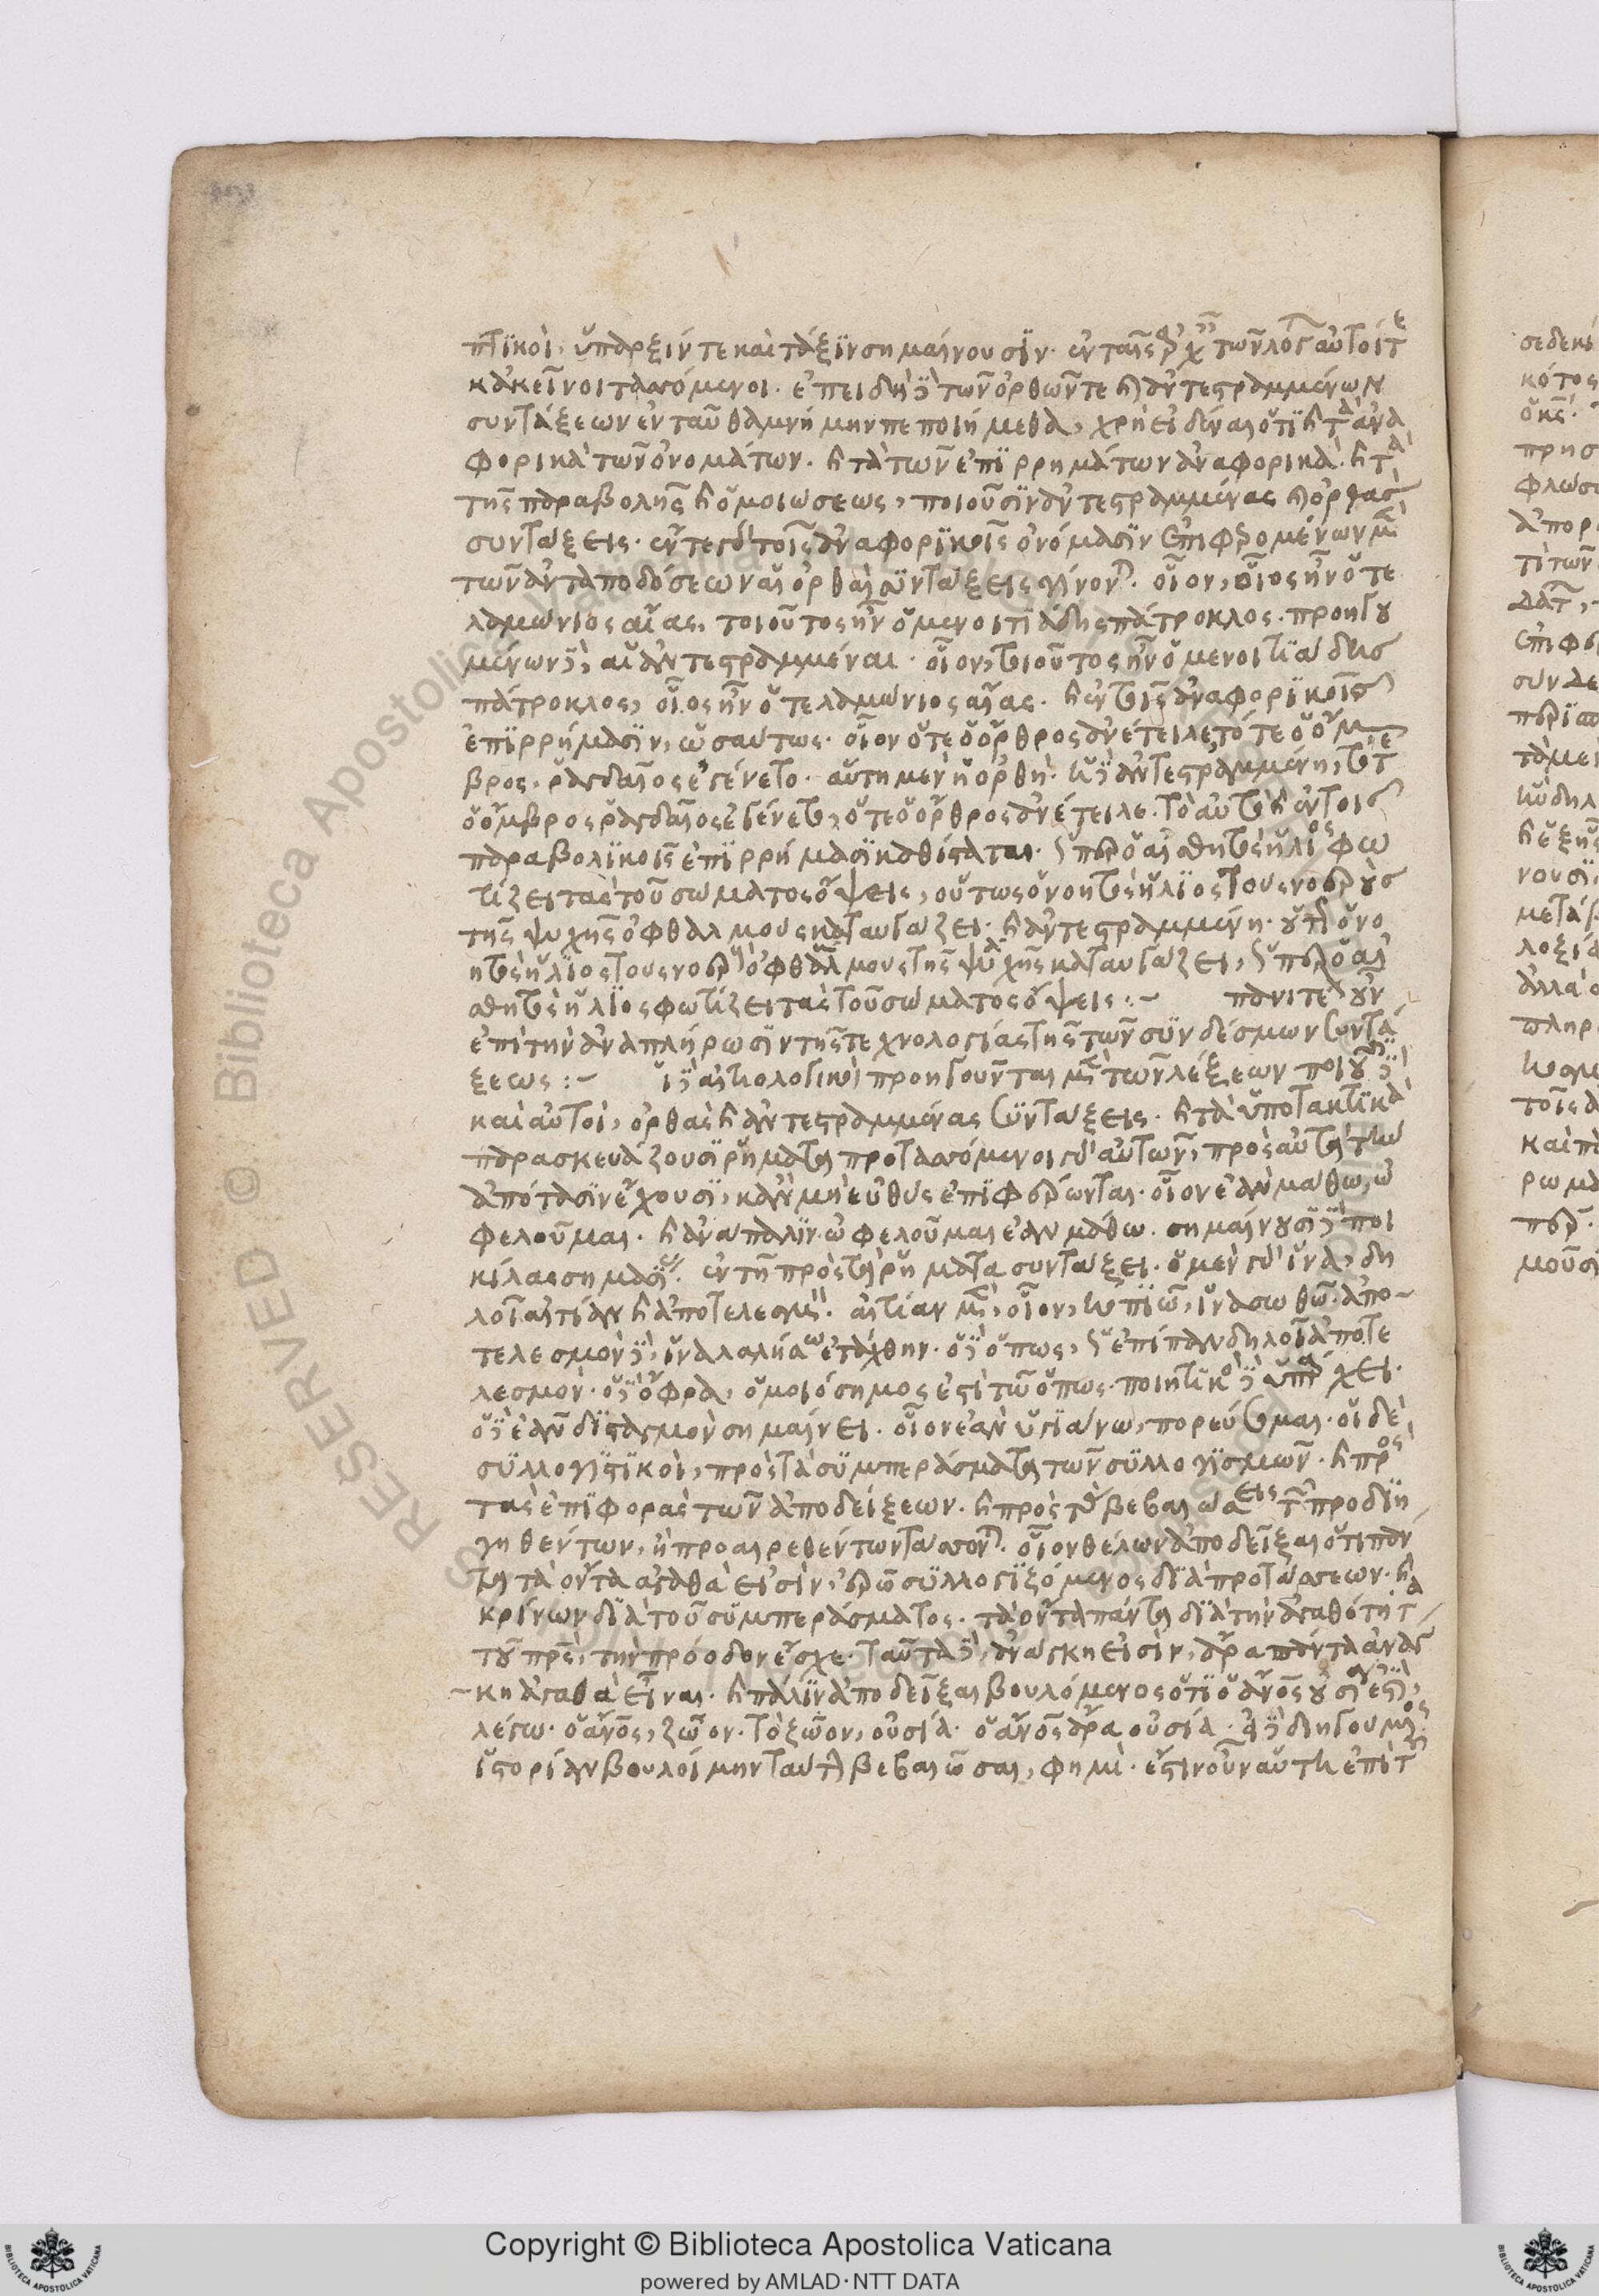 πτικοὶ, ὕπαρξίν τε καὶ τάξιν σημαίνουσιν. ἐν ταῖς ἀρχ τῶν λόγ αὐτοί τε
κἀκεῖνοι ταττόμενοι. ἐπειδὴ δὲ τῶν ὀρθῶν τε κ ἀντεστραμμένων
συντάξεων ἐνταῦθα μνήμην πεποιήμεθα, χρὴ εἰδέναι ὅτι κ τὰ ἀνα
φορικὰ τῶν ὀνομάτων. κ τὰ τῶν ἐπιρρημάτων ἀναφορικὰ. κ τὰ
τῆς παραβολῆς κ ὁμοιώσεως, ποιοῦσιν ἀντεστραμμένας κ ὀρθας
συντάξεις. ἔν τε γὰρ τοῖς ἀναφορικοῖς ὀνόμασιν ἐπιφερομένων μὲν
τῶν ἀνταποδόσεων αἱ ὀρθαὶ συντάξεις γίνον. οἷον, οἷος ἦν ὁ τε
λαμώνιος αἴας, τοιοῦτος ἦν ὁ μενοιτιάδης πάτροκλος. προηγου
μένων δὲ, αἱ ἀντεστραμμέναι. οἷον, τοιοῦτος ἦν ὁ μενοιτιάδης
πάτροκλος, οἷος ἦν ὁ τελαμώνιος αἴας. κ ἐν τοῖς ἀναφορικοῖς
ἐπιρρήμασιν, ὡσαύτως. οἷον ὅτε ὁ ὄρθρος ἀνέτειλε, τότε ὁ ὄμ
βρος, ῥαγδαῖος ἐγένετο. αὕτη μὲν ἡ ὀρθή. ἡ δὲ ἀντεστραμμένη, τότε
ὁ ὄμβρος ῥαγδαῖος ἐγένετο, ὅτε ὁ ὄρθρος ἀνέτειλε. τὸ αὐτὸ κ ἐν τοῖς
παραβολικοῖς ἐπιρρήμασι καθίσταται. ὥσπερ ὁ αἰσθητὸς ἥλιος φω
τίζει τὰς τοῦ σώματος ὄψεις, οὕτως ὁ νοητὸς ἥλιος τοὺς νοεροὺς
τῆς ψυχῆς ὀφθαλμοὺς καταυγάζει. κ ἀντεστραμμένη. οὕτως ὁ νο
ητὸς ἥλιος τοὺς νοεροὺς ὀφθαλμοὺς τῆς ψυχῆς καταυγάζει, ὥσπερ ὁ αἰ
σθητὸς ἥλιος φωτίζει τὰς τοῦ σώματος ὄψεις :~ πάνιτέον
ἐπὶ τὴν ἀναπλήρωσιν τῆς τεχνολογίας τῆς τῶν συνδέσμων συντά
ξεως :~ οἱ δὲ αἰτιολογικοὶ προηγοῦνται μὲν τῶν λέξεων ποιοῦσι δὲ
καὶ αὐτοὶ, ὀρθὰς κ ἀντεστραμμένας συντάξεις. κ τὰ ὑποτακτικὰ
παρασκευάζουσι ῥήματα προταττόμενοι αὐτῶν, πρὸς αὐτὰ τὴν
ἀπότασιν ἔχουσι, κἂν μὴ εὐθὺς ἐπιφέρωνται. οἷον ἐὰν μάθω, ὠ
φελοῦμαι. κ ἀνάπαλιν ὠφελοῦμαι ἐὰν μάθω. σημαίνουσι δὲ ποι
κίλας σημασίας. ἐν τῇ πρὸς τὰ ῥήματα συντάξει. ὁ μὲν γὰρ ἵνα, δη
λοῖ αἰτίαν κ ἀποτελεσμόν. αἰτίαν μὲν, οἷον, ποιῶ, ἵνα σωθῶ. ἀπο
τελεσμὸν δὲ, ἵνα λαλήσω ἐτάχθην. ὁ δὲ ὅπως, ὡς ἐπίπαν δηλοῖ ἀποτε
λεσμόν. ὁ δὲ ὄφρα, ὁμοιόσημος ἐστὶ τῷ ὅπως. ποιητικὸς δὲ ὑπάρχει.
ὁ δὲ ἐὰν δισταγμὸν σημαίνει. οἷον ἐὰν ὑγιάνω, πορεύσομαι. οἱ δὲ
συλλογιστικοὶ, πρὸς τὰ συμπεράσματα τῶν συλλογισμῶν. κ πρὸς
τὰς ἐπιφορὰς τῶν ἀποδείξεων. κ πρὸς τὰς βεβαιώσεις τῶν προδιη
γηθέντων, ἢ προαιρεθέντων τάττον. οἷον θέλων ἀποδεῖξαι ὅτι πάν
τα τὰ ὄντα ἀγαθὰ εἰσὶν, ἐρῶ συλλογιζόμενος διὰ προτάσεων. κ
κρίνων διὰ τοῦ συμπεράσματος. τὰ ὄντα πάντα διὰ τὴν ἀγαθότητα
τοῦ πρς, τὴν πρόοδον ἔσχε. ταῦτα δὲ, ἀνάγκη εἰσὶν, ἄρα πάντα ἀνάγ
κη ἀγαθὰ εἶναι. κ πάλιν ἀποδεῖξαι βουλόμενος ὅτι ὁ ἄνος οὐσία ἐστὶ,
λέγω. ὁ ἄνος, ζῶον. τὸ ζῶον, οὐσία. ὁ ἄνος ἄρα οὐσία. εἰ δὲ διηγούμενος
ἱστορίαν βουλοίμην ταύτην βεβαιῶσαι, φημὶ. ἔστιν οὖν αὕτη ἐπὶ τ